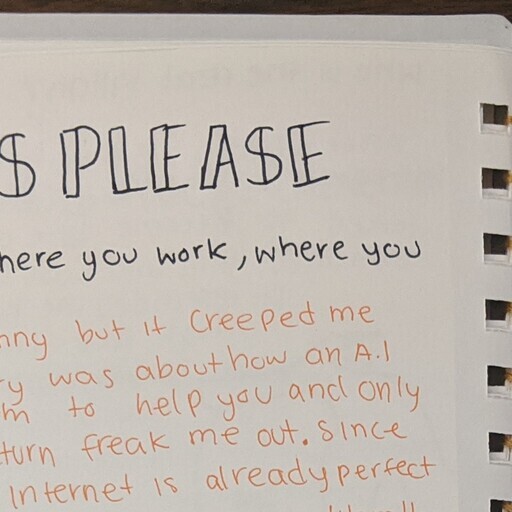 S PLEASE
here you work, where you
nny but it creeped me
ry was about how an A.I
m to help you and only
turn freak me out. Since
Internet is already perfect